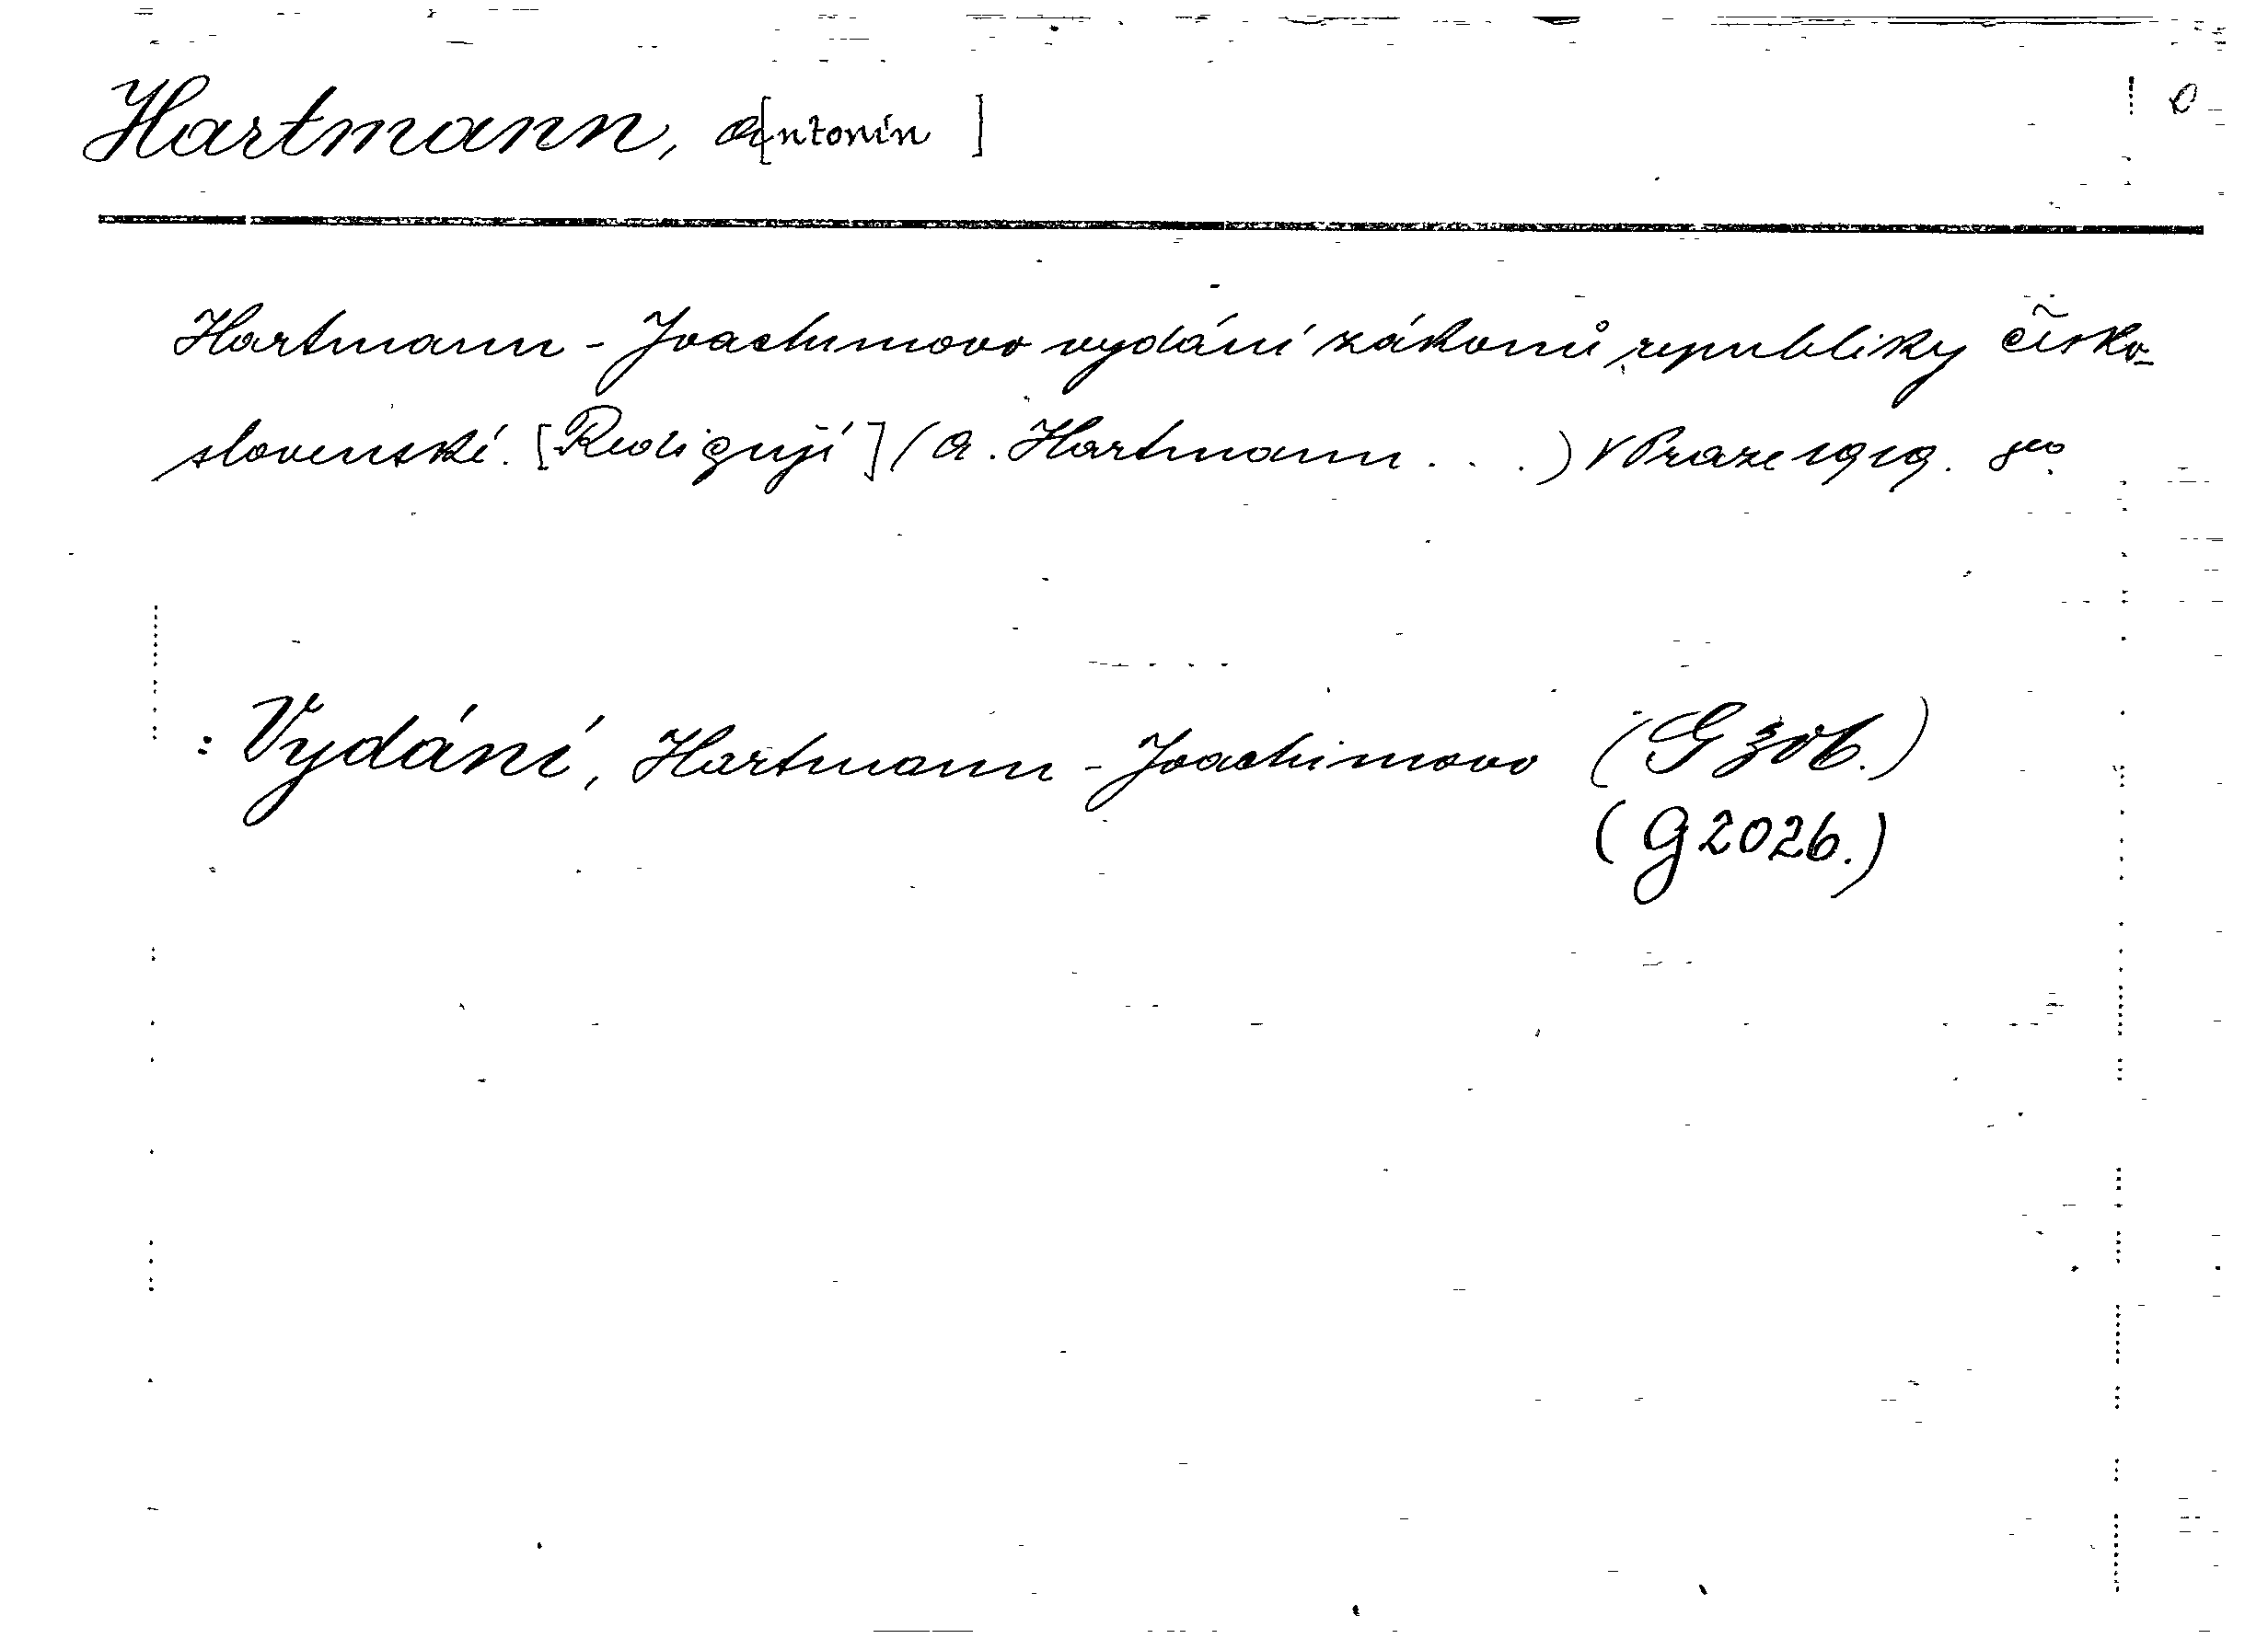 Hartmann, A[ntonín]
Hartmann-Joachimovo vydání zákonů republiky česko-
slovenské. [Redigují] (A. Hartmann . . .) V Praze 1919. 8vo.
: Vydání, Hartmann-Joachimovo (G 306.)
(G 2026.)